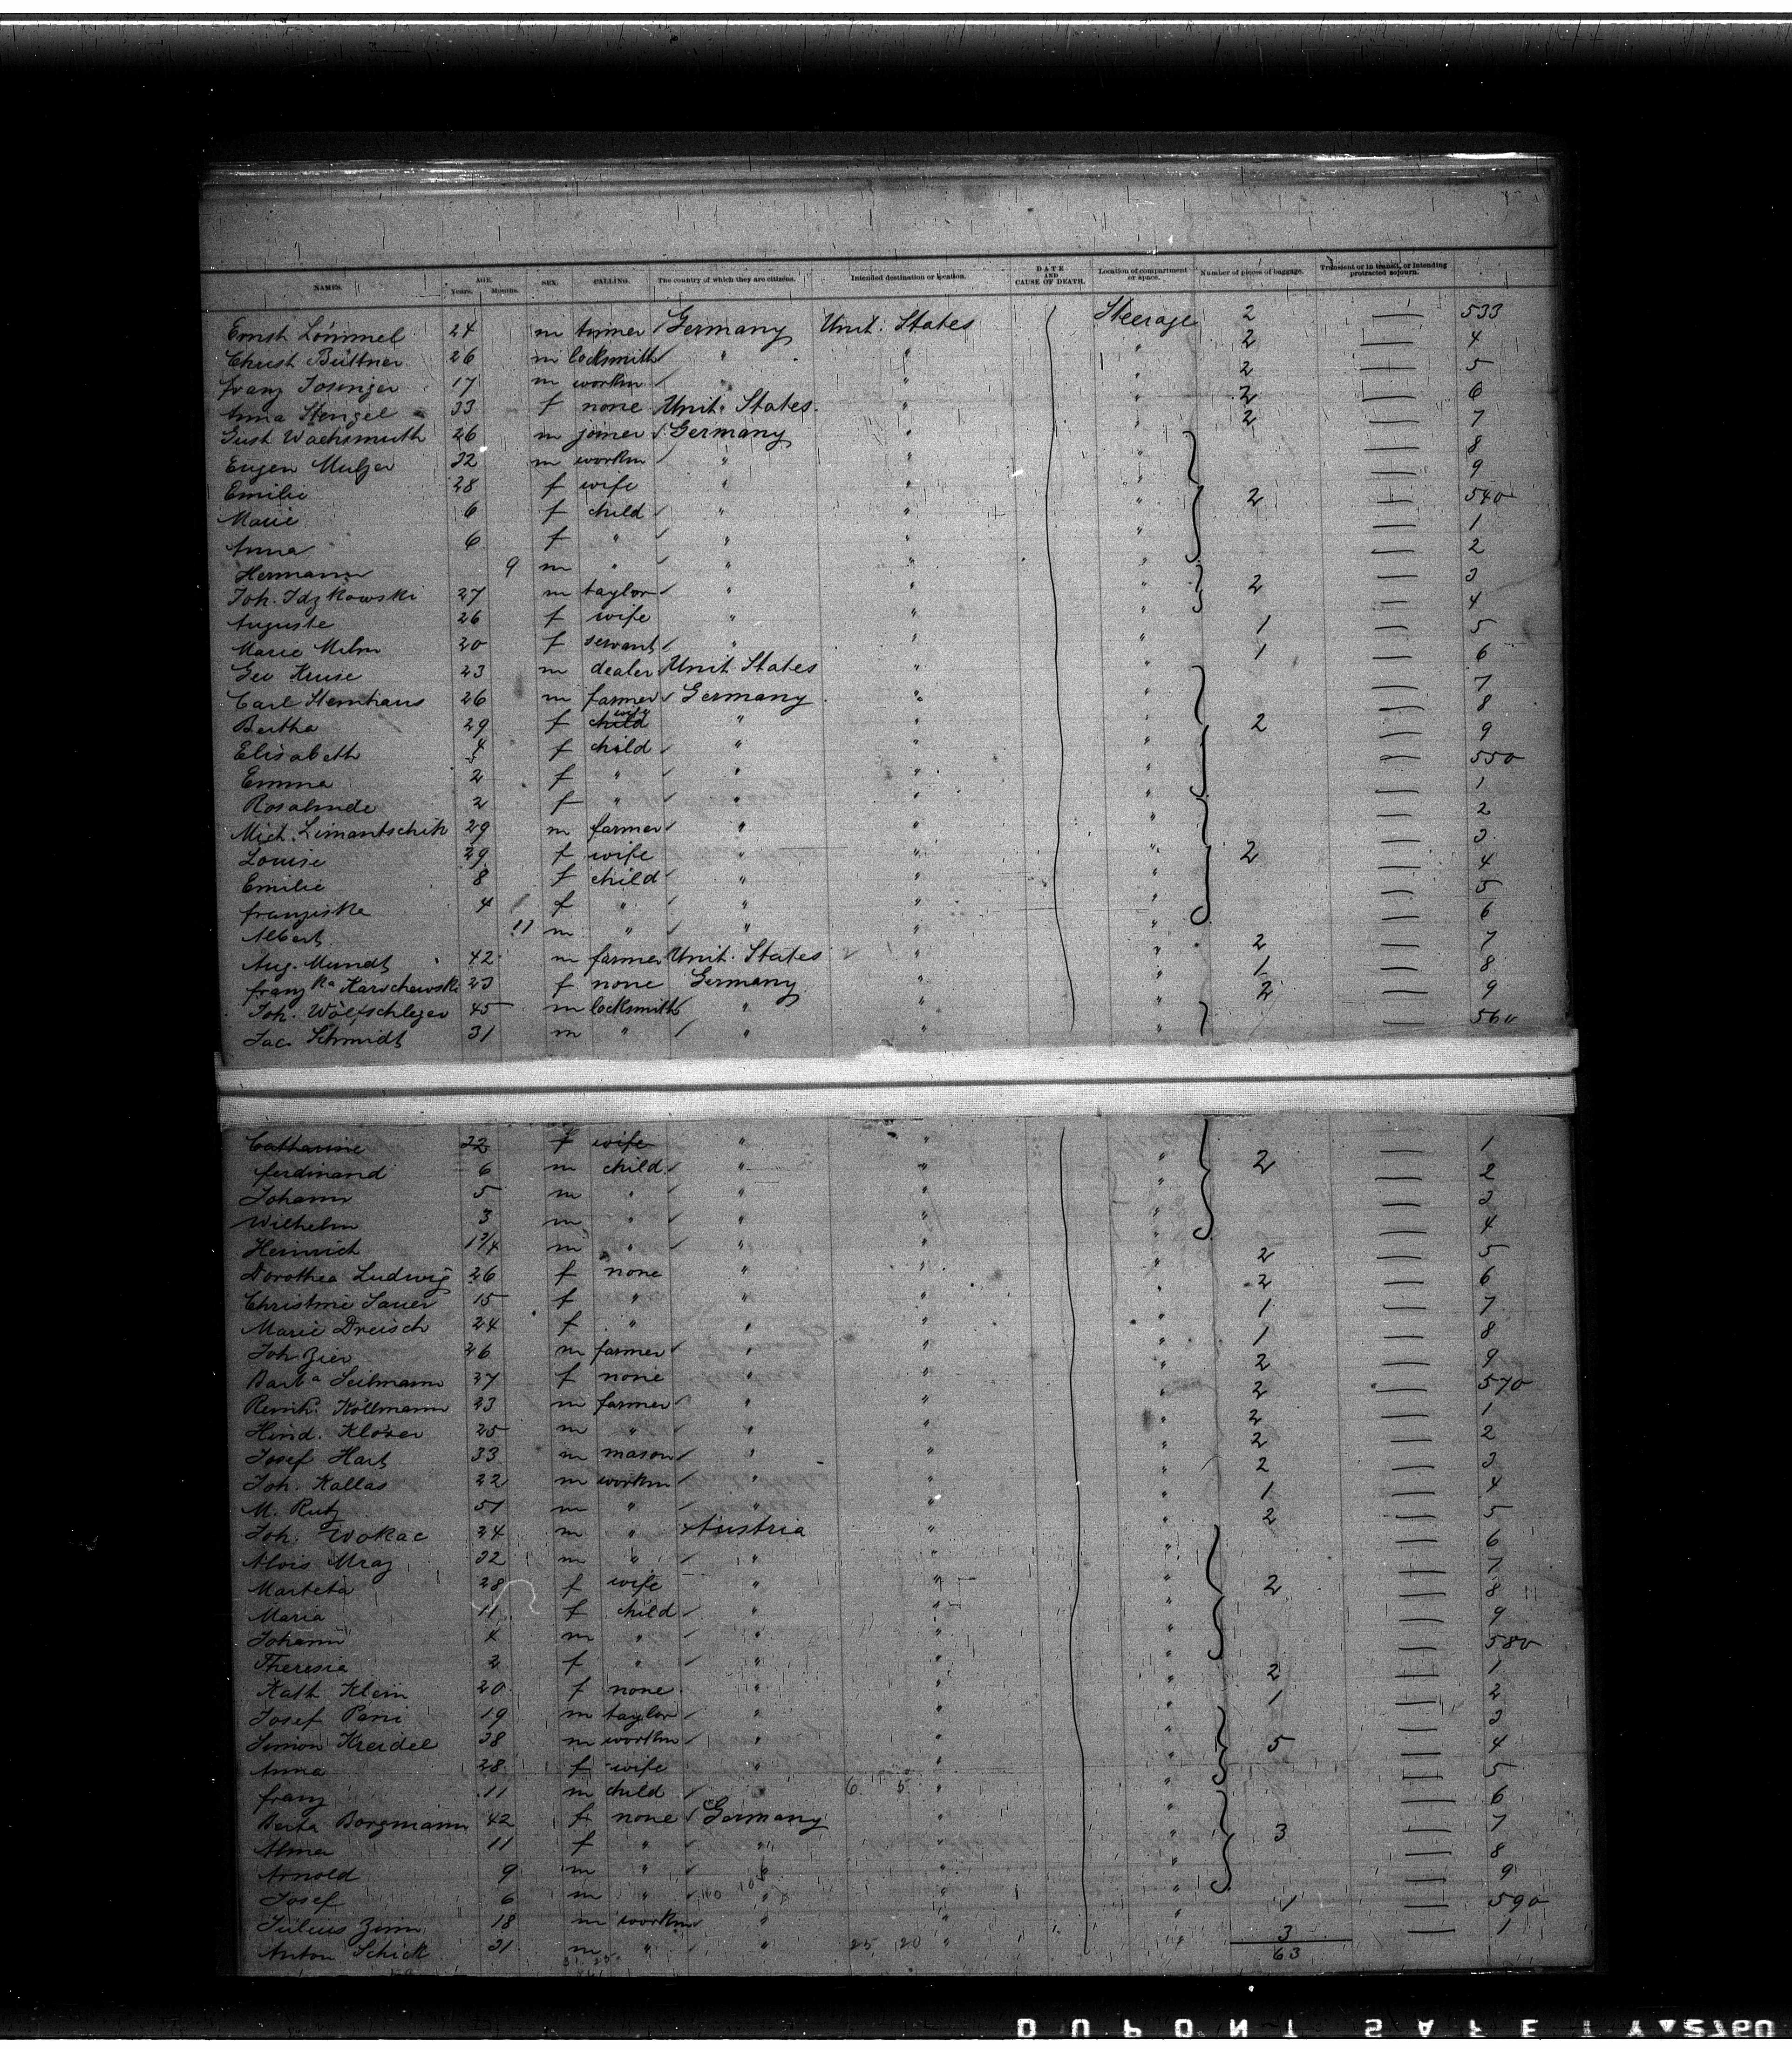 NAMES. AGE. Years. Months. SEX. CALLING. The country of which they are citizens. Intended destination or location. DATE AND CAUSE OF DEATH. Location of compartment or space. Number of pieces of baggage. Transient or in transit, or intending protracted sojourn.
Ernst Lömmel 24 m turner Germany Unit. States Steerage 2 — 533
Christ Büttner 26 m locksmith " " " 2 — 4
Franz 17 m workm " " " 2 — 5
Anna Stengel 33 f none Unit. States " " 2 — 6
Gust Wachsmuth 26 m joiner Germany " " 2 — 7
Eugen Mulzer 32 m workm " " " — 8
Emilie 28 f wife " " " — 9
Marie 6 f child " " " 2 — 540
Anna 6 f " " " " — 1
Hermann 9 m " " " " — 2
Joh. Idzkowski 27 m taylor " " " 2 — 3
Auguste 26 f wife " " " — 4
Marie Milm 20 f servant " " " 1 — 5
Geo Kruse 23 m dealer Unit. States " " 1 — 6
Carl Stemhaus 26 m farmer Germany " " — 7
Bertha 29 f child wife " " " 2 — 8
Elisabeth 4 f child " " " — 9
Emma 2 f " " " " — 550
Rosalinde 2 f " " " " — 1
Mich. Limantschik 29 m farmer " " " — 2
Louise 29 f wife " " " 2 — 3
Emilie 8 f child " " " — 4
Franziska 4 f " " " " — 5
Albert 11 m " " " " — 6
Aug. Mundt 42 m farmer Unit. States " " 2 — 7
Franzka Karschewski 23 f none Germany " " 1 — 8
Joh. Wölfschleger 45 m locksmith " " " 2 — 9
Jac. Schmidt 31 m " " " " — 560
Catharine 22 f wife " " " — 1
Ferdinand 6 m child " " " 2 — 2
Johann 5 m " " " " — 3
Wilhelm 3 m " " " " — 4
Heinrich 1 3/4 m " " " "
Dorothea Ludwig 26 f none " " " 2 — 5
Christine Sauer 15 f " " " " 2 — 6
Marie Dreisch 24 f " " " " 1 — 7
Joh Zier 26 m farmer " " " 1 — 8
Barba Seilmann 37 f none " " " 2 — 9
Reinh. Köllmann 23 m farmer " " " 2 — 570
Hind. Kloser 25 m " " " " 2 — 1
Josef Hart 33 m mason " " " 2 — 2
Joh. Kallas 22 m workm " " " 2 — 3
M. Rutz 51 m " " " " 1 — 4
Joh. Wokac 24 m " Austria " " 2 — 5
Alois Mraz 32 m " " " " — 6
Marketa 28 f wife " " " — 7
Maria 11 f child " " " 2 — 8
Johann 4 m " " " " — 9
Theresia 2 f " " " " — 580
Kath Klein 20 f none " " " 2 — 1
Josef Pani 19 m taylor " " " 1 — 2
Simon Kreidel 38 m workm " " " 5 — 3
Anna 28 f wife " " " — 4
Franz 11 m child " 6 5 " " — 5
Berta Borgmann 42 f none Germany " " — 6
Alma 11 f " " " " 3 — 7
Arnold 9 m " " " " — 8
Josef 6 m " " " " — 9
Julius Zinn 18 m workm " " " 1 — 590
Anton Schick 21 m " " 25 20 " " 3 — 1
63
DUPONT SAFETY 2760